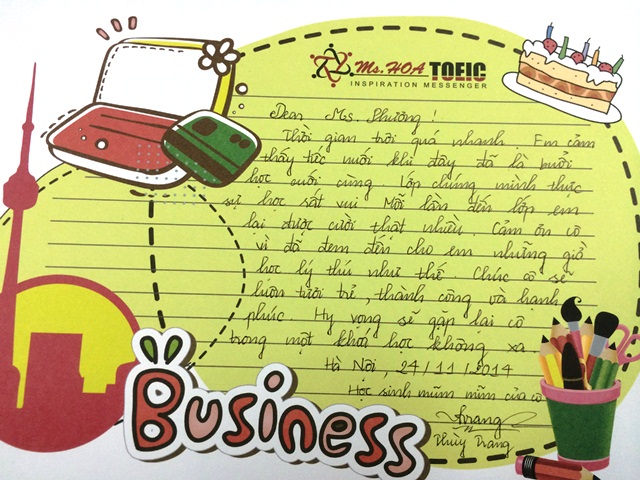 Ms. HOA TOEIC
INSPIRATION MESSENGER
Dear Ms. Phương!
Thời gian trôi quá nhanh. Em cảm
thấy tiếc nuối khi đây đã là buổi
học cuối cùng. Lớp chúng mình thực
sự học rất vui. Mỗi lần đến lớp em
lại được cười thật nhiều. Cảm ơn cô
vì đã đem đến cho em những giờ
học lý thú như thế. Chúc cô sẽ
luôn tươi trẻ, thành công và hạnh
phúc. Hy vọng sẽ gặp lại cô
trong một khoá học không xa.
Hà Nội, 24/11/2014
Học sinh mũm mĩm của cô
Trang
Thùy Trang
Business